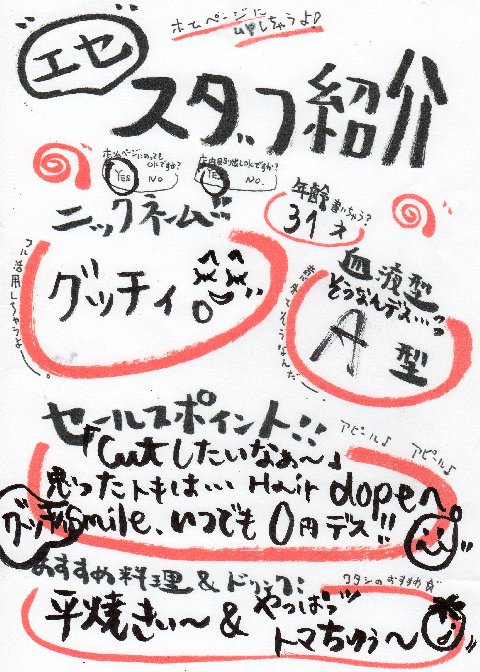 ホームページに
upしちゃうよ♪
エセ
スタッフ紹介
ホームページにのっても
OKですか?
YES NO
店内貼り出しOKですか?
YES NO.
年齢書いちゃう?
31才
ニックネーム!!
フル活用しちゃうよ〜。
グッチィ
血液型
そうなんデス…
A型
セールスポイント!!
アピール♪ アピール♪
「Cutしたいなぁ〜」
思ったトキは… Hair dopeへ。
グッチィSmile、いつでも0円デス!!
おすすめ料理&ドリンク:
ワタシのおすすめ☆
平焼きぃ〜& やっぱッ
トマちゅぅ〜